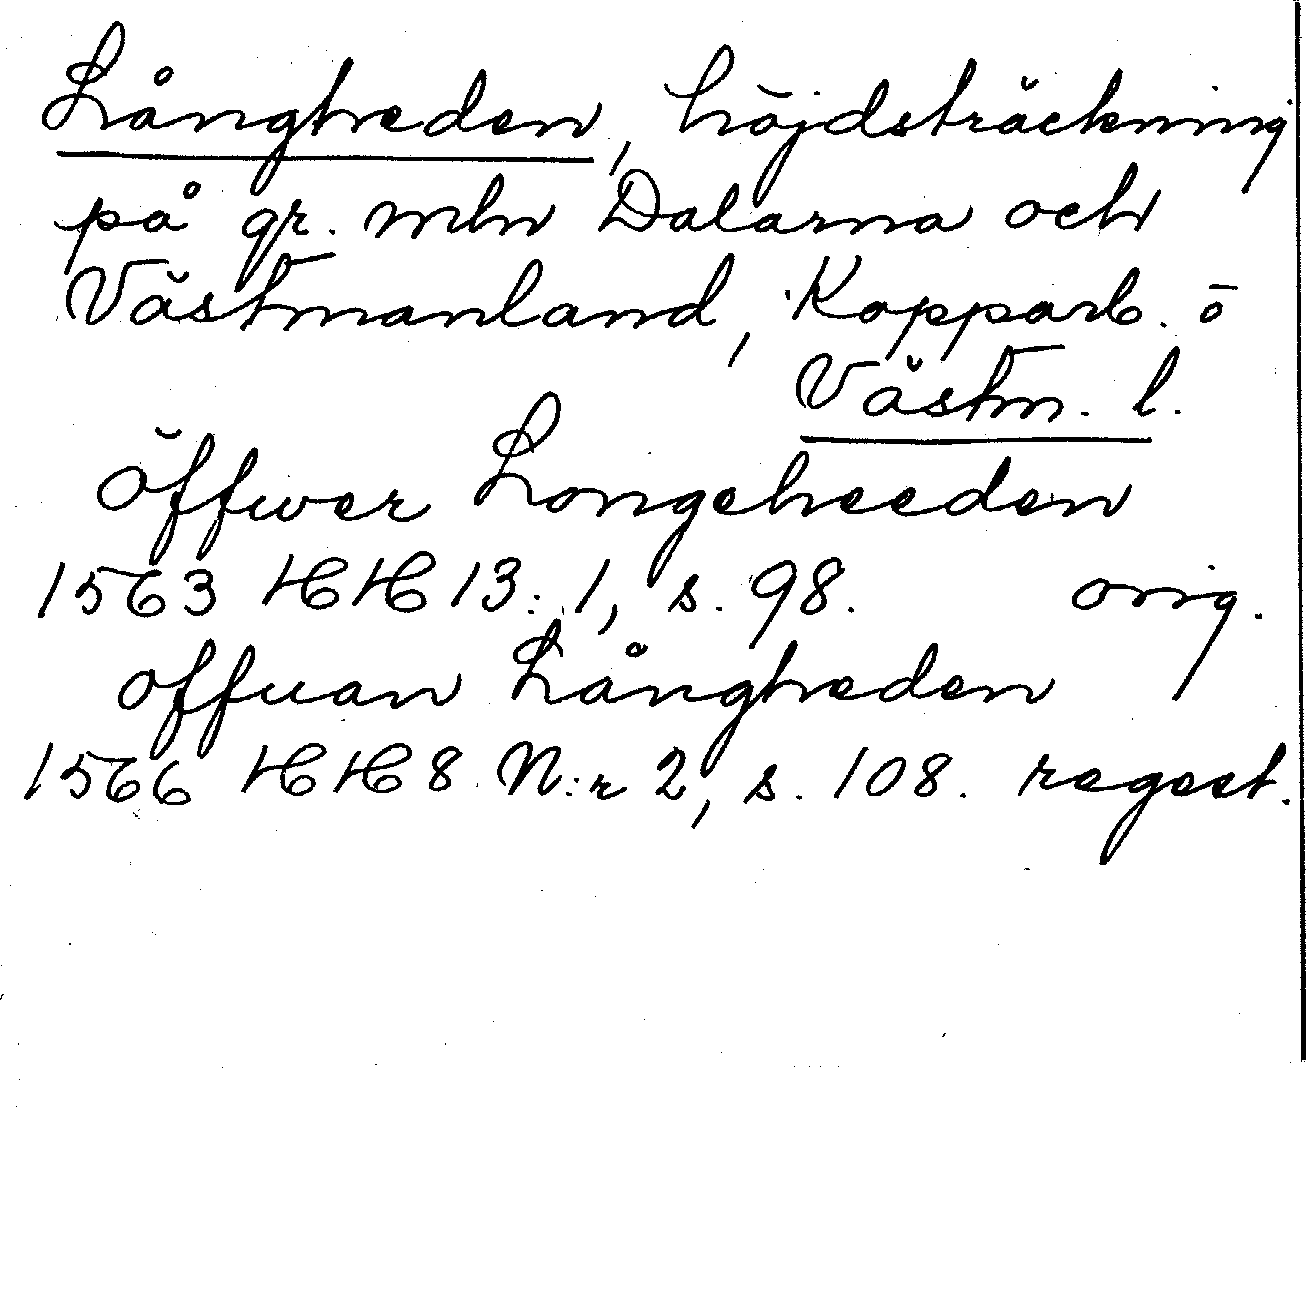 Långheden, höjdsträckning
på gr. mln Dalarna och
Västmanland, Kopparb. o
Västm. l.
öffwer Longeheeden
1563 HH 13: 1, s. 98. orig.
offuan Långheden
1566 HH 8 N:r 2, s. 108. regest.